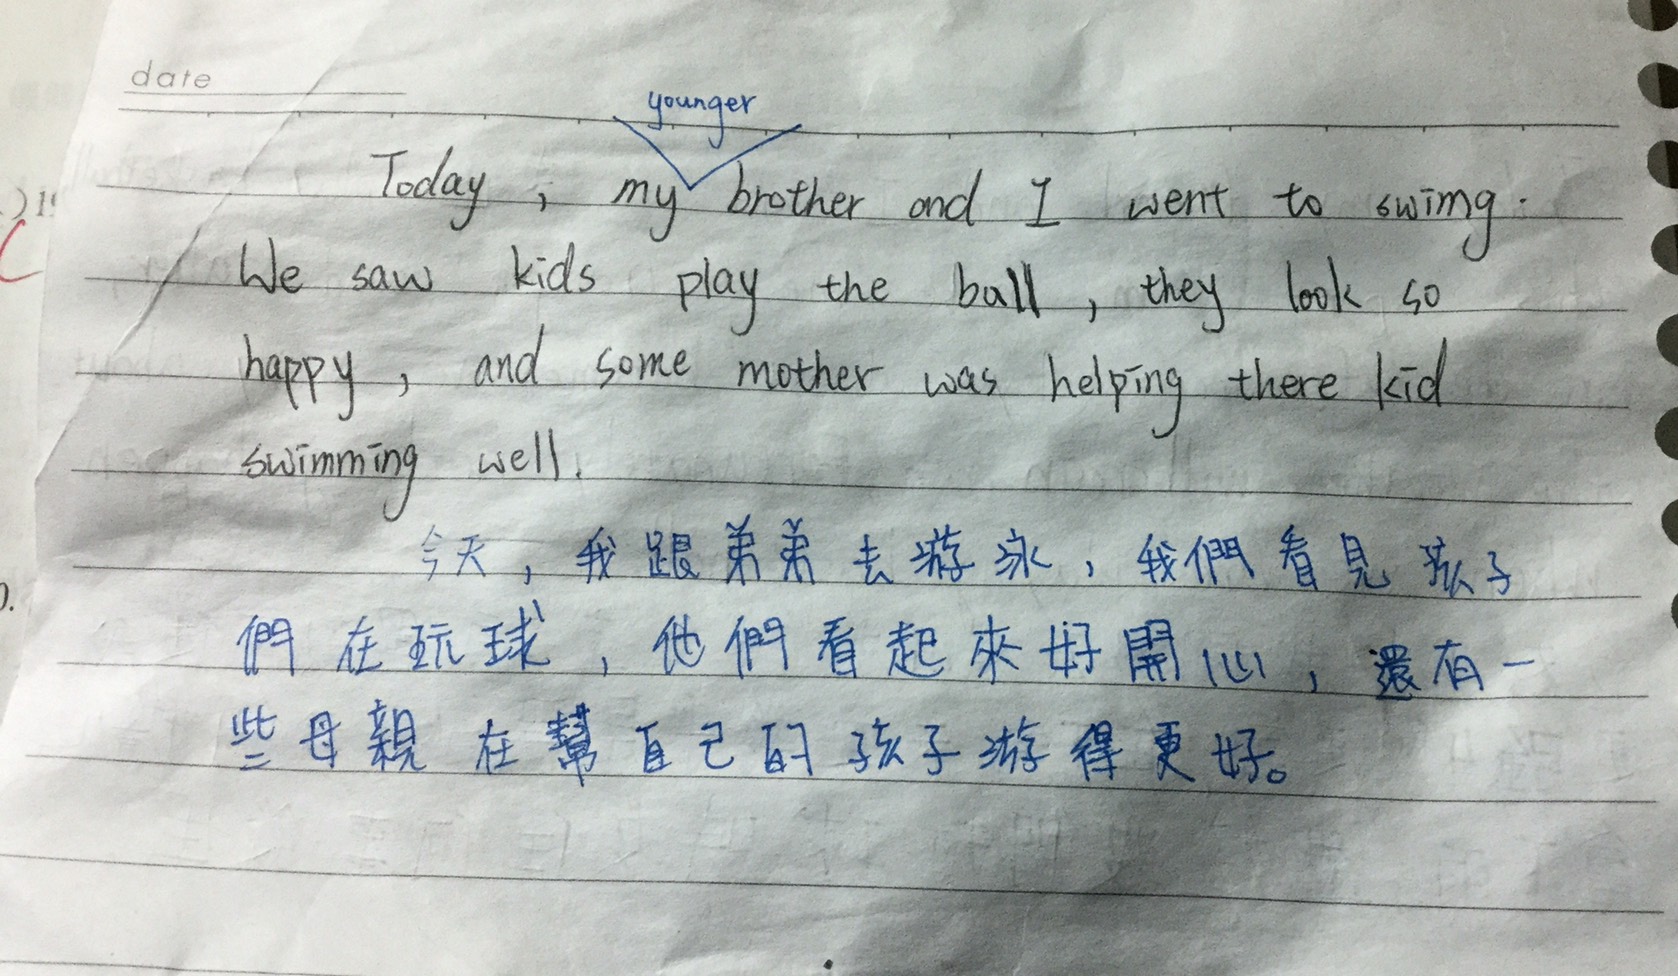 date
younger
Today, my brother and I went to swimg.
We saw kids play the ball, they look so
happy, and some mother was helping there kid
swimming well.
今天，我跟弟弟去游泳，我們看見孩子
們在玩球，他們看起來好開心，還有一
些母親在幫自己的孩子游得更好。